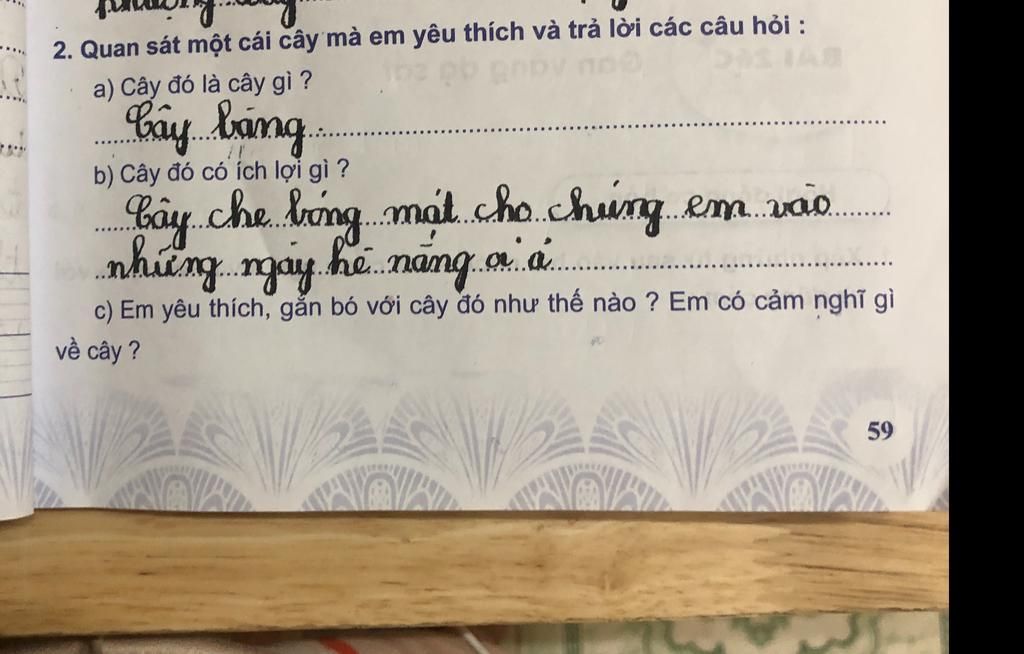 2. Quan sát một cái cây mà em yêu thích và trả lời các câu hỏi :
a) Cây đó là cây gì ?
Cây bàng
b) Cây đó có ích lợi gì ?
Cây che bóng mát cho chúng em vào
những ngày hè nắng oi ả
c) Em yêu thích, gắn bó với cây đó như thế nào ? Em có cảm nghĩ gì
về cây ?
59